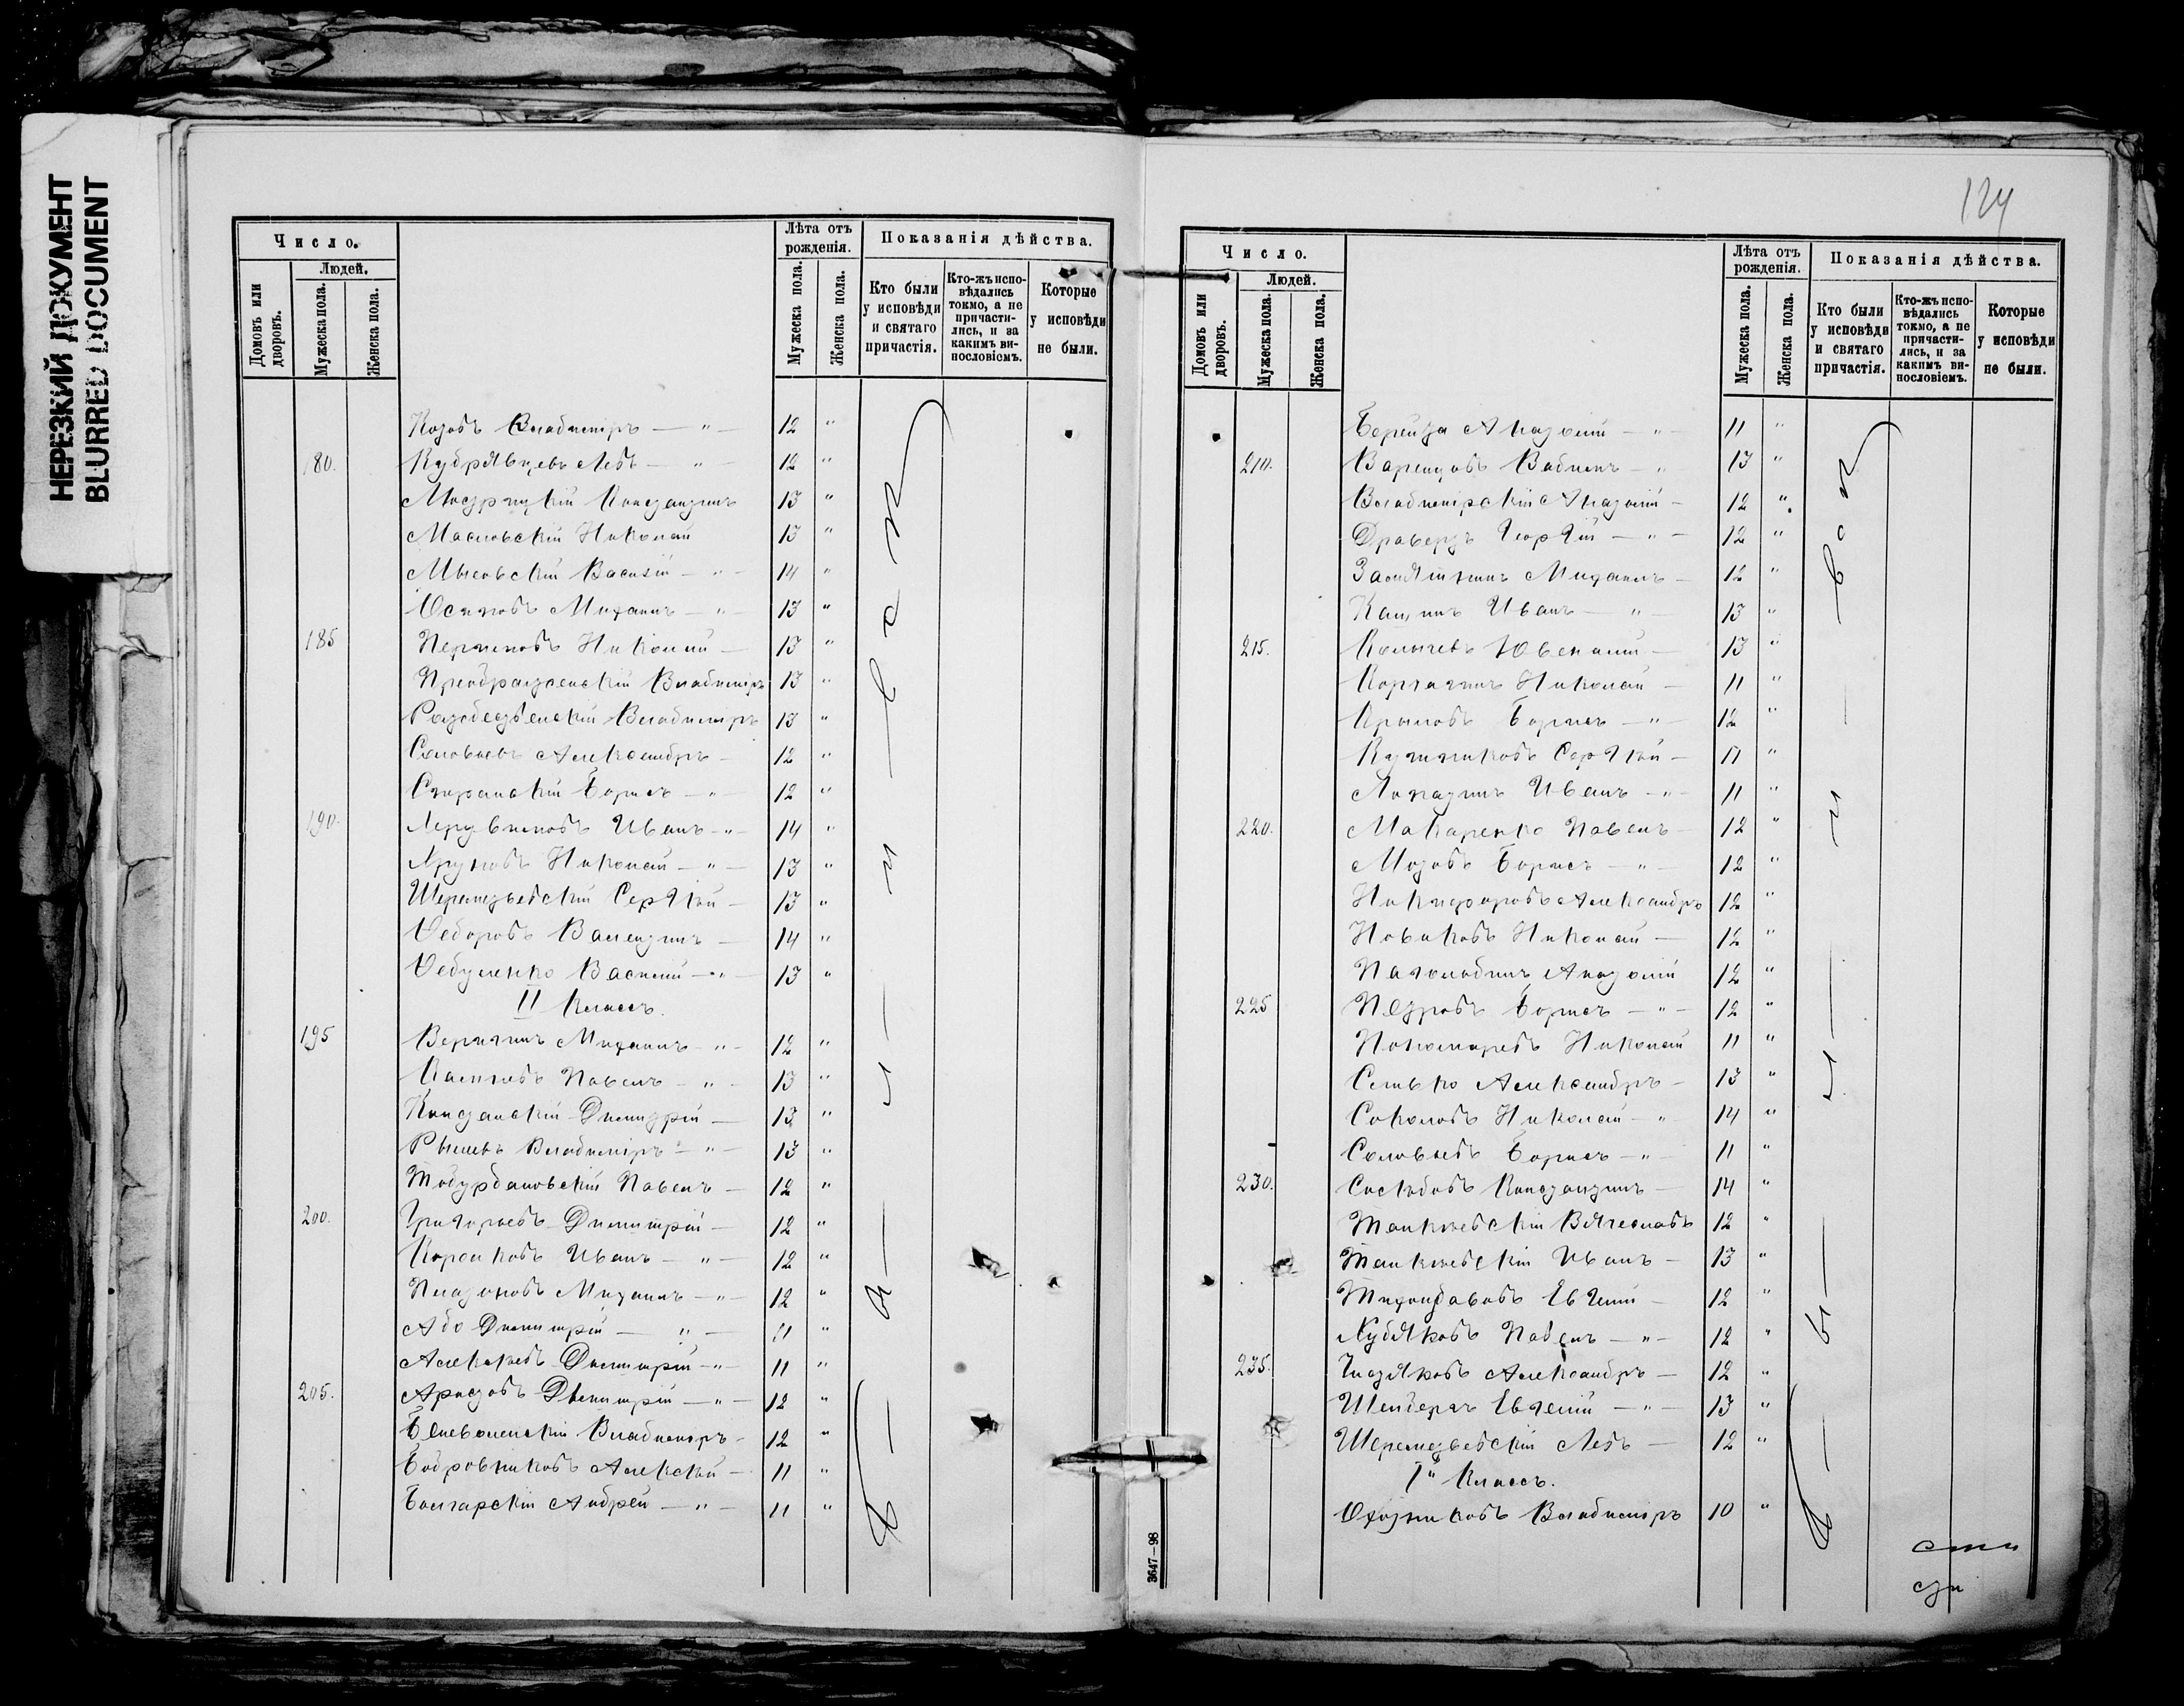 НЕРЕЗКИЙ ДОКУМЕНТ
BLURRED DOCUMENT
Число.
Домовъ или дворовъ.
Людей.
Мужеска пола.
Женска пола.
Лѣта отъ рожденія.
Мужеска пола.
Женска пола.
Показанія дѣйства.
Кто были у исповѣди и святаго причастія.
Кто-жъ исповѣдались токмо, а не причастились, и за какимъ винословіемъ.
Которые у исповѣди не были.
Козовъ Владиміръ — " — 12 "
180. Кудрявцевъ Левъ — " — 12 "
Константинъ 13 "
Масловскій Николай 13 "
Василій — " — 14 "
Осиповъ Михаилъ — " — 13 "
185 Николай — 13 "
Преображенскій Владиміръ 13 "
Рождественскій Владиміръ 13 "
Соловьевъ Александръ — 12 "
Сперанскій Борисъ — " 12 "
190. Херувимовъ Иванъ — " — 14 "
Николай — " — 13 "
Шереметьевскій Сергѣй — 13 "
Ѳедоровъ Валентинъ — 14 "
Ѳедуленко Василій — " — 13 "
II Классъ.
195 Веригинъ Михаилъ — " — 12 "
Павелъ — " — 13 "
Димитрій — 13 "
Владиміръ — " — 13 "
Павелъ — 12 "
200. Григорьевъ Димитрій — 12 "
Корсаковъ Иванъ — " — 12 "
Платоновъ Михаилъ — " — 12 "
Або Димитрій — " — 11 "
Алексѣевъ Димитрій — " — 11 "
205. Аристовъ Димитрій — " — 12 "
Беневоленскій Владиміръ — 12 "
Бобровниковъ Алексѣй — 11 "
Болгарскій Андрей — " — 11 "
124
Число.
Домовъ или дворовъ.
Людей.
Мужеска пола.
Женска пола.
Лѣта отъ рожденія.
Мужеска пола.
Женска пола.
Показанія дѣйства.
Кто были у исповѣди и святаго причастія.
Кто-жъ исповѣдались токмо, а не причастились, и за какимъ винословіемъ.
Которые у исповѣди не были.
Анатолій — " — 11 "
210. Варенцовъ Вадимъ — " 13 "
Владимірскій Анатолій — 12 "
Дравертъ Георгій — " — 12 "
Замятнинъ Михаилъ — 12 "
Иванъ — " — 13 "
215. Колычевъ Ювеналій — 13 "
Корчагинъ Николай — 11 "
Крыловъ Борисъ — " — 12 "
Сергѣй — 11 "
Лопатинъ Иванъ — " — 11 "
220. Макаренко Павелъ — 12 "
Борисъ — " — 12 "
Никифоровъ Александръ 12 "
Новиковъ Николай — 12 "
Паголодинъ Анатолій 12 "
225 Петровъ Борисъ — " — 12 "
Пономаревъ Николай 11 "
Александръ — 13 "
Соколовъ Николай — " 14 "
Соловьевъ Борисъ — " — 11 "
230. Константинъ — 14 "
Танкѣевскій Вячеславъ 12 "
Танкѣевскій Иванъ — 13 "
Евгеній — 12 "
Худяковъ Павелъ — " — 12 "
235. Александръ — 12 "
Евгеній — " — 13 "
Шереметьевскій Левъ — 12 "
I й Классъ.
Охотниковъ Владиміръ 10 "
3647—98